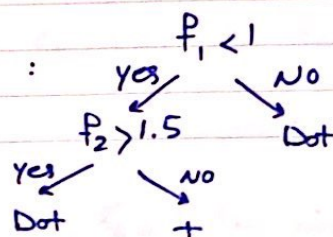 f₁ < 1
:
yes NO
f₂ > 1.5 Dot
yes NO
Dot +